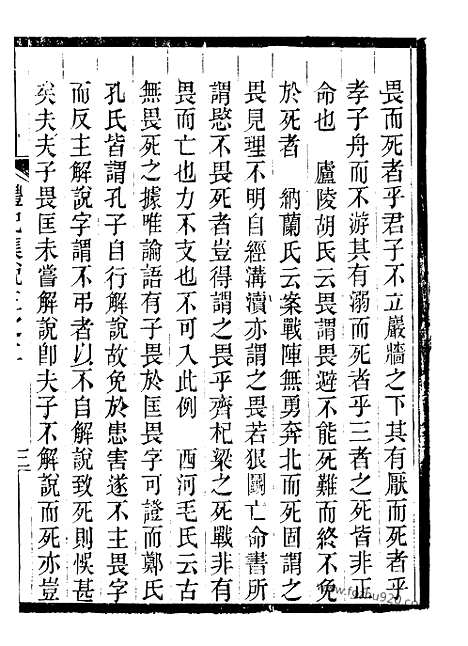 畏而死者乎君子不立巖牆之下其有厭而死者乎
孝子舟而不游其有溺而死者乎三者之死皆非正
命也　盧陵胡氏云畏謂畏避不能死難而終不免
於死者　納蘭氏云案戰陣無勇奔北而死固謂之
畏見理不明自經溝瀆亦謂之畏若狠鬬亡命書所
謂愍不畏死者豈得謂之畏乎齊杞梁之死戰非有
畏而亡也力不支也不可入此例　西河毛氏云古
無畏死之據唯論語有子畏於匡畏字可證而鄭氏
孔氏皆謂孔子自行解說故免於患害遂不主畏字
而反主解說字謂不弔者以不自解說致死則悞甚
矣夫夫子畏匡未嘗解說卽夫子不解說而死亦豈
禮記集說
www.fgzhu920.com